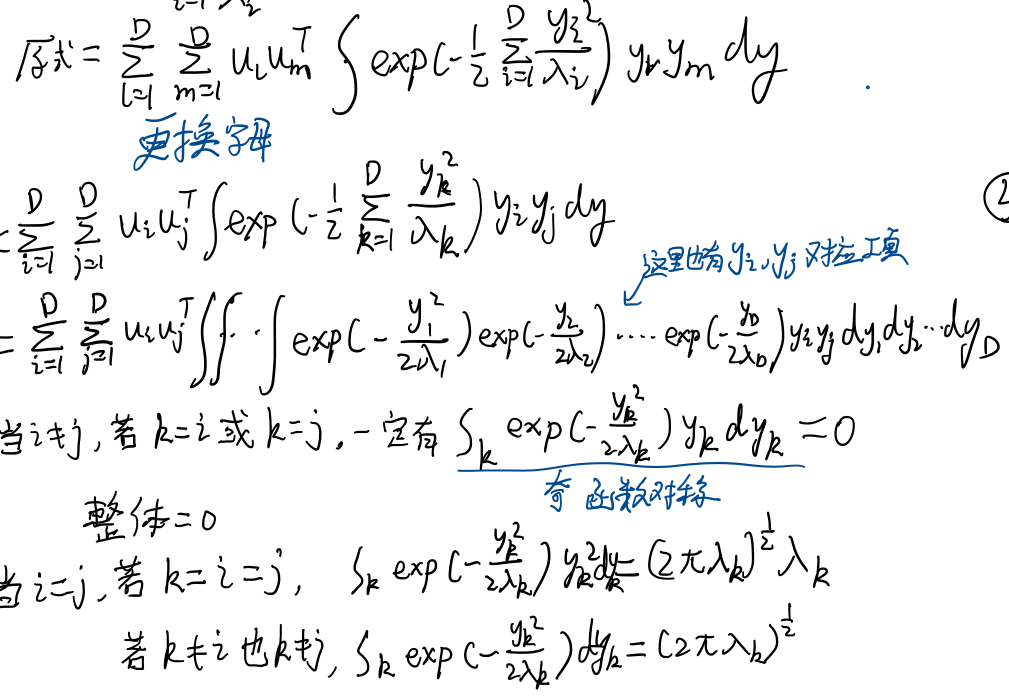 i=1 λi
原式 = ∑_{l=1}^{D} ∑_{m=1}^{D} u_l u_m^T ∫ exp(-1/2 ∑_{i=1}^{D} y_i^2/λ_i) y_l y_m dy
更换字母
= ∑_{i=1}^{D} ∑_{j=1}^{D} u_i u_j^T ∫ exp(-1/2 ∑_{k=1}^{D} y_k^2/λ_k) y_i y_j dy
②
这里也有 y_i, y_j 对应项
= ∑_{i=1}^{D} ∑_{j=1}^{D} u_i u_j^T ∫∫⋯∫ exp(-y_1^2/2λ_1) exp(-y_2/2λ_2) ⋯⋯ exp(-y_D/2λ_D) y_i y_j dy_1 dy_2 ⋯ dy_D
当 i≠j, 若 k=i 或 k=j, 一定有 ∫_k exp(-y_k^2/2λ_k) y_k dy_k = 0
奇函数对称
整体=0
当 i=j, 若 k=i=j, ∫_k exp(-y_k^2/2λ_k) y_k^2 dy_k = (2πλ_k)^{1/2} λ_k
若 k≠i 也 k≠j, ∫_k exp(-y_k^2/2λ_k) dy_k = (2πλ_k)^{1/2}